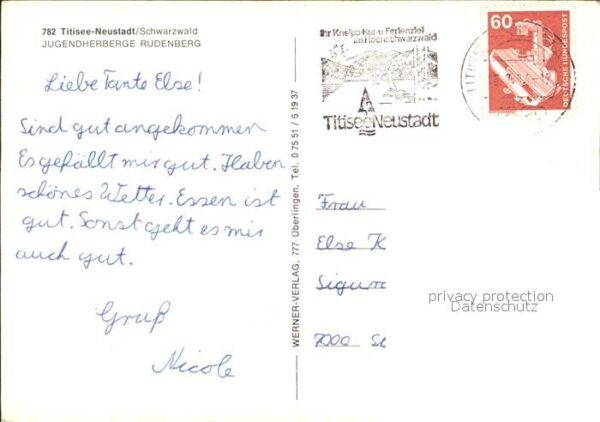 782 Titisee-Neustadt/Schwarzwald
JUGENDHERBERGE RUDENBERG
Liebe Tante Else!
Sind gut angekommen
Es gefällt mir gut. Haben
schönes Wetter. Essen ist
gut. Sonst geht es mir
auch gut.
Gruß
Nicole
WERNER-VERLAG, 777 Überlingen, Tel. 0 75 51 / 6 19 37
Ihr Kneipp-Kur- u. Ferienziel
im Hochschwarzwald
Titisee-Neustadt
60
DEUTSCHE BUNDESPOST
Frau
Else K
Sigur
7000 St
privacy protection
Datenschutz